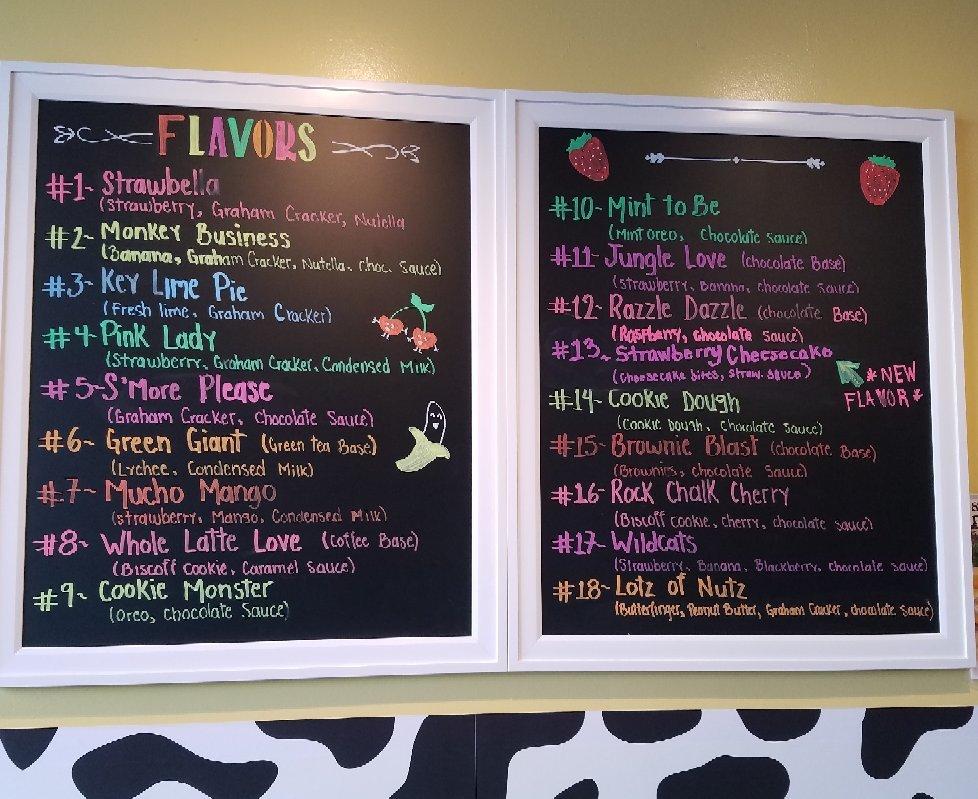 FLAVORS
#1- Strawbella
(Strawberry, Graham Cracker, Nutella
#2- Monkey Business
(Banana, Graham Cracker, Nutella, Choc. Sauce)
#3- Key Lime Pie
(Fresh lime, Graham Cracker)
#4- Pink Lady
(Strawberry, Graham Cracker, Condensed Milk)
#5- S'More Please
(Graham Cracker, Chocolate Sauce)
#6- Green Giant (Green tea Base)
(Lychee, Condensed Milk)
#7- Mucho Mango
(strawberry, Mango, Condensed Milk)
#8- Whole Latte Love (Coffee Base)
(Biscoff Cookie, Caramel Sauce)
#9- Cookie Monster
(Oreo, Chocolate Sauce)
#10- Mint to Be
(Mint oreo, Chocolate Sauce)
#11- Jungle Love (chocolate Base)
(strawberry, Banana, chocolate Sauce)
#12- Razzle Dazzle (chocolate Base)
(Raspberry, chocolate Sauce)
#13- Strawberry Cheesecake
(cheesecake bites, straw. sauce)
*NEW
FLAVOR*
#14- Cookie Dough
(Cookie Dough, Chocolate Sauce)
#15- Brownie Blast (chocolate Base)
(Brownies, chocolate Sauce)
#16- Rock Chalk Cherry
(Biscoff cookie, cherry, chocolate sauce)
#17- Wildcats
(Strawberry, Banana, Blackberry, chocolate sauce)
#18- Lotz of Nutz
(Butterfinger, Peanut Butter, Graham Cracker, chocolate Sauce)